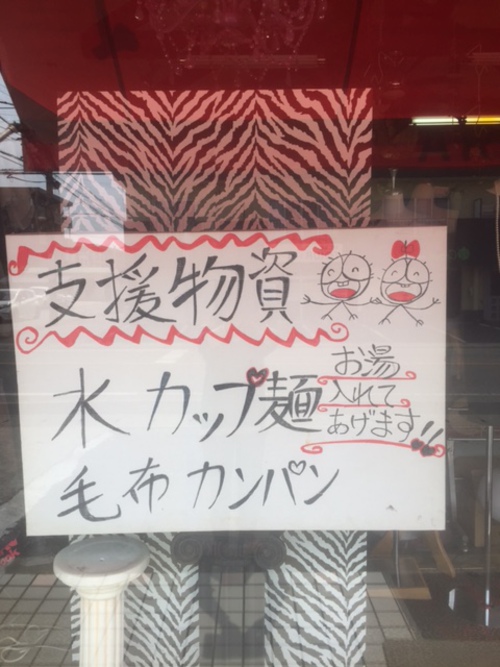 支援物資
水 カップ麺
お湯
入れて
あげます!!
毛布 カンパン